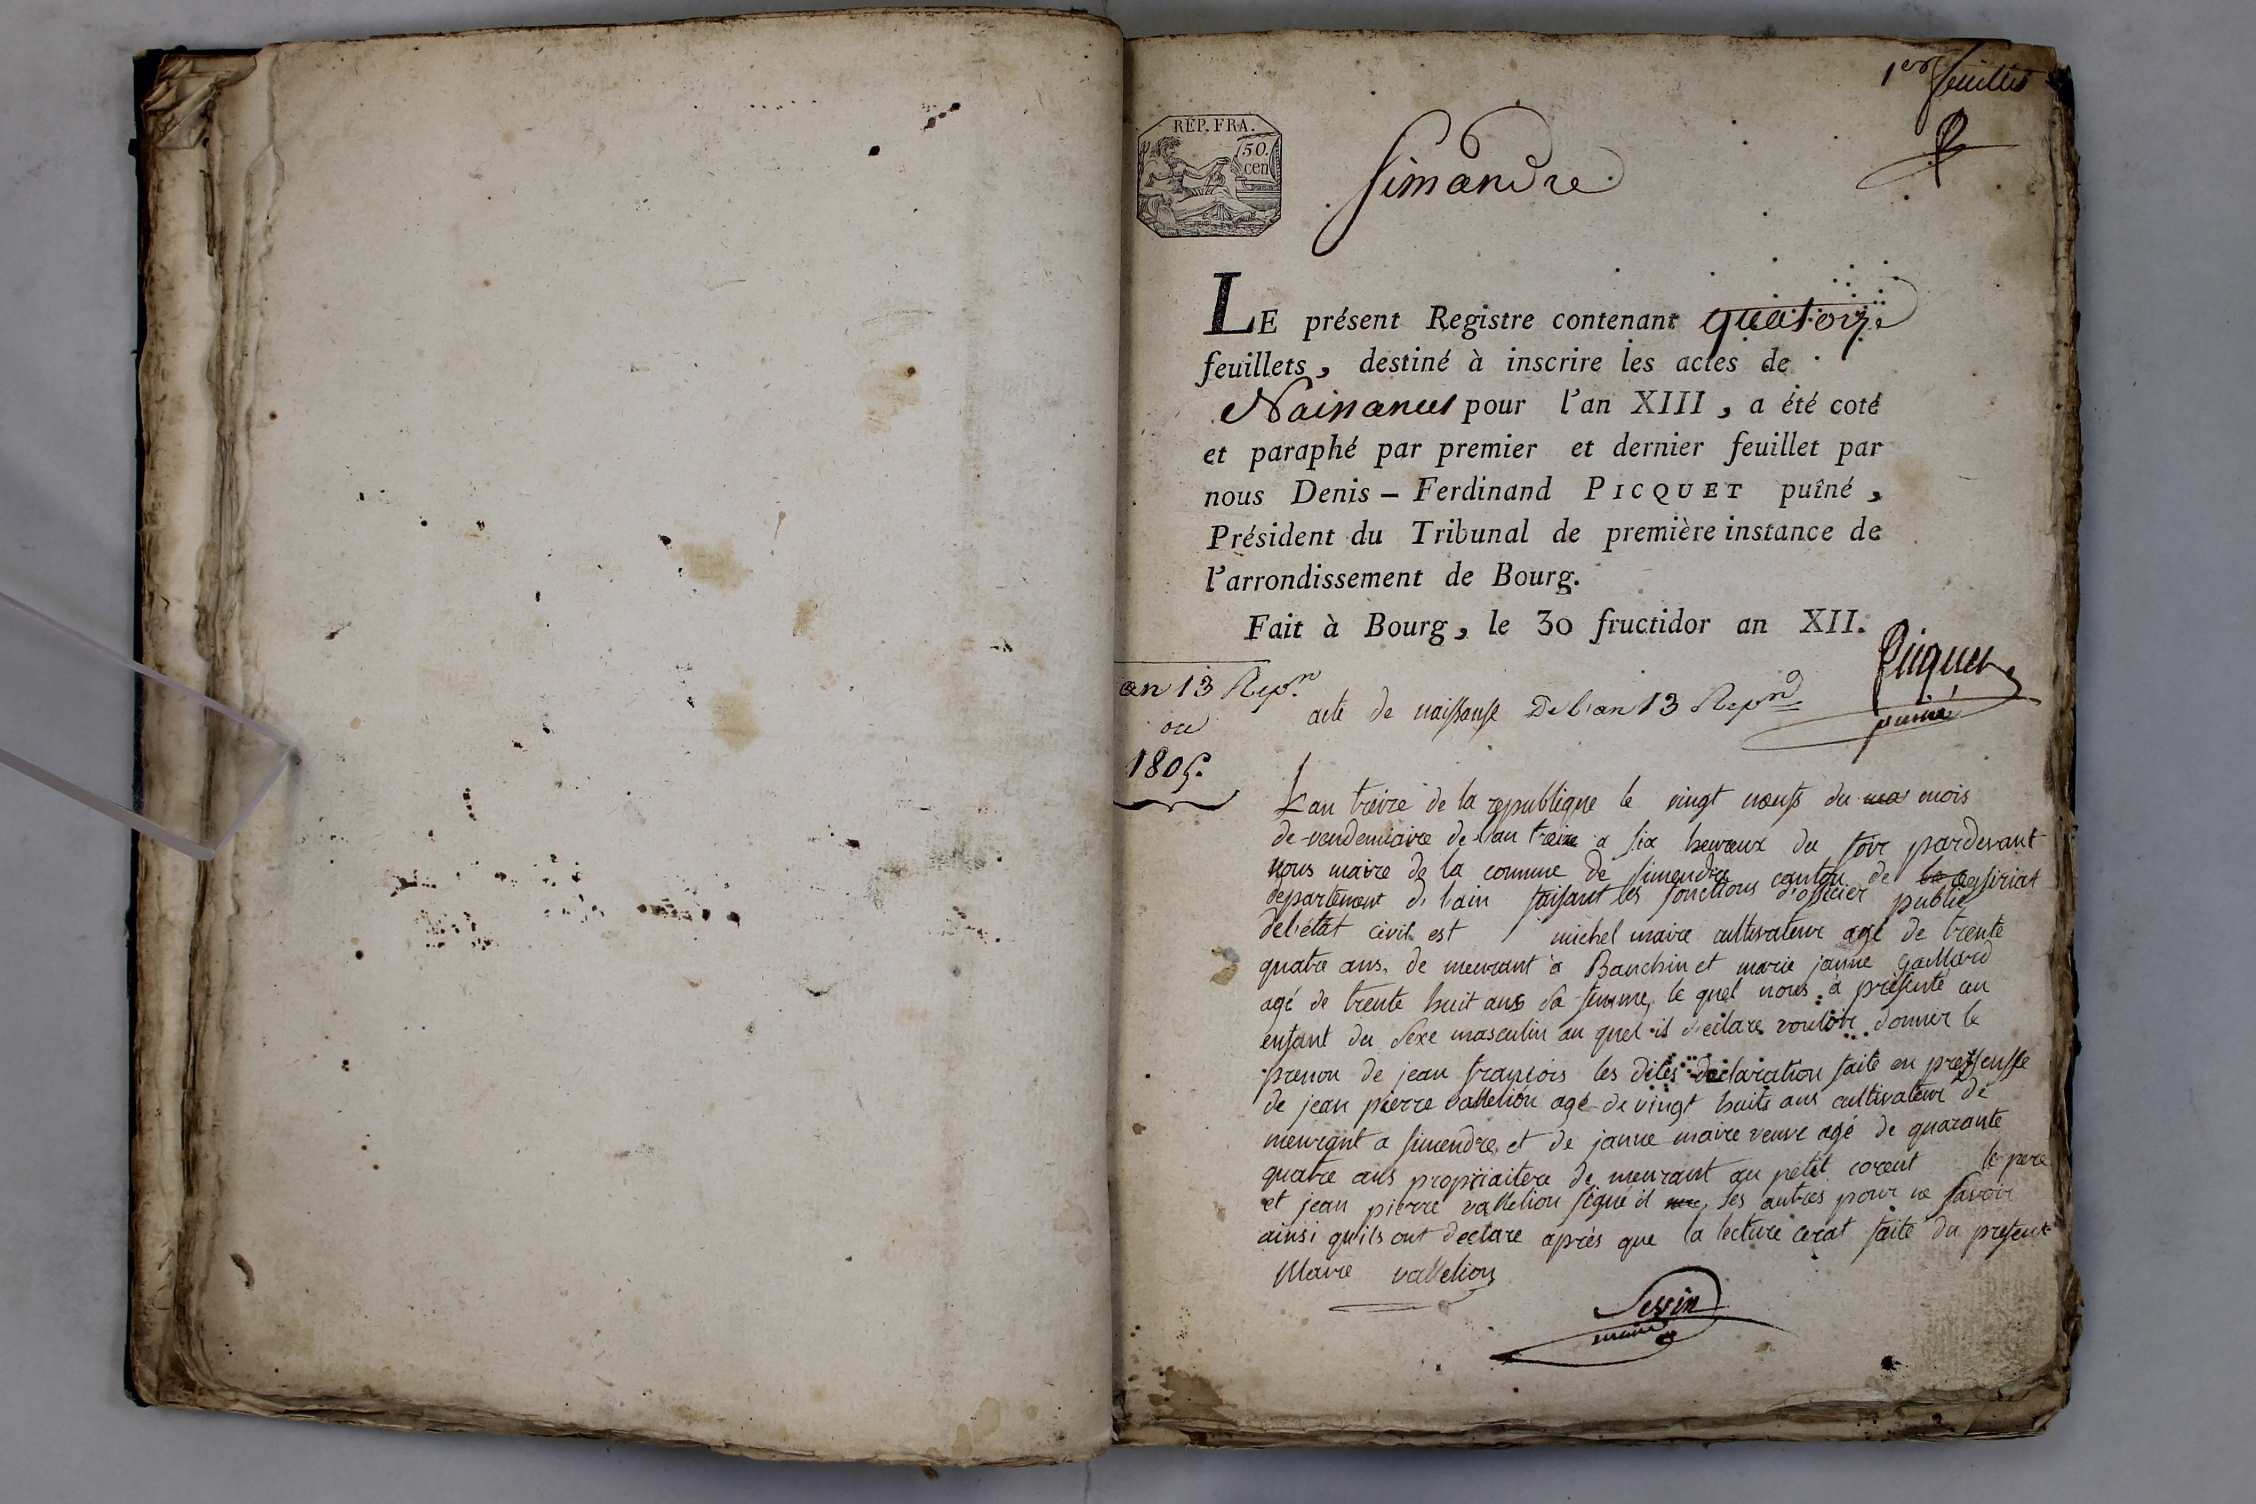 1er feuillet
REP. FRA.
50.
cen
Simandre
LE présent Registre contenant quatorze
feuillets, destiné à inscrire les actes de
Naissances pour l'an XIII, a été coté
et paraphé par premier et dernier feuillet par
nous Denis - Ferdinand PICQUET puîné,
Président du Tribunal de première instance de
l'arrondissement de Bourg.
Fait à Bourg, le 30 fructidor an XII.
Picquet
puiné
an 13 Repn
ou
1805.
acte de naissansse De l'an 13 Repn
Lan treize de la republique le vingt neufs du mois
de vendemiaire de l'an treize a six heureux du soir pardevant
nous maire de la commune de simendre canton de ceseiriat
departement de lain faisant les fonctions d'officier public
del'état civil est michel maire cultivateur agé de trente
quatre ans, de meurant a Banchin et marie janne gaillard
agé de trente huit ans sa femme, le quel nous a présenté un
enfant du sexe masculin au quel il déclare vouloir donner le
prenon de jean françois les dites declaration faite en pressensse
de jean pierre vallelion agé de vingt huits ans cultivateur de
meurant a simendre, et de janne maire veuve agé de quarante
quatre ans propriaitere de meurant au petit corent le pere
et jean pierre vallelion signé il les autres pour ne savoir
ainsi qu'ils ont declare après que la lecture cerat faite du present
Maire vallelion
Sevin
maire